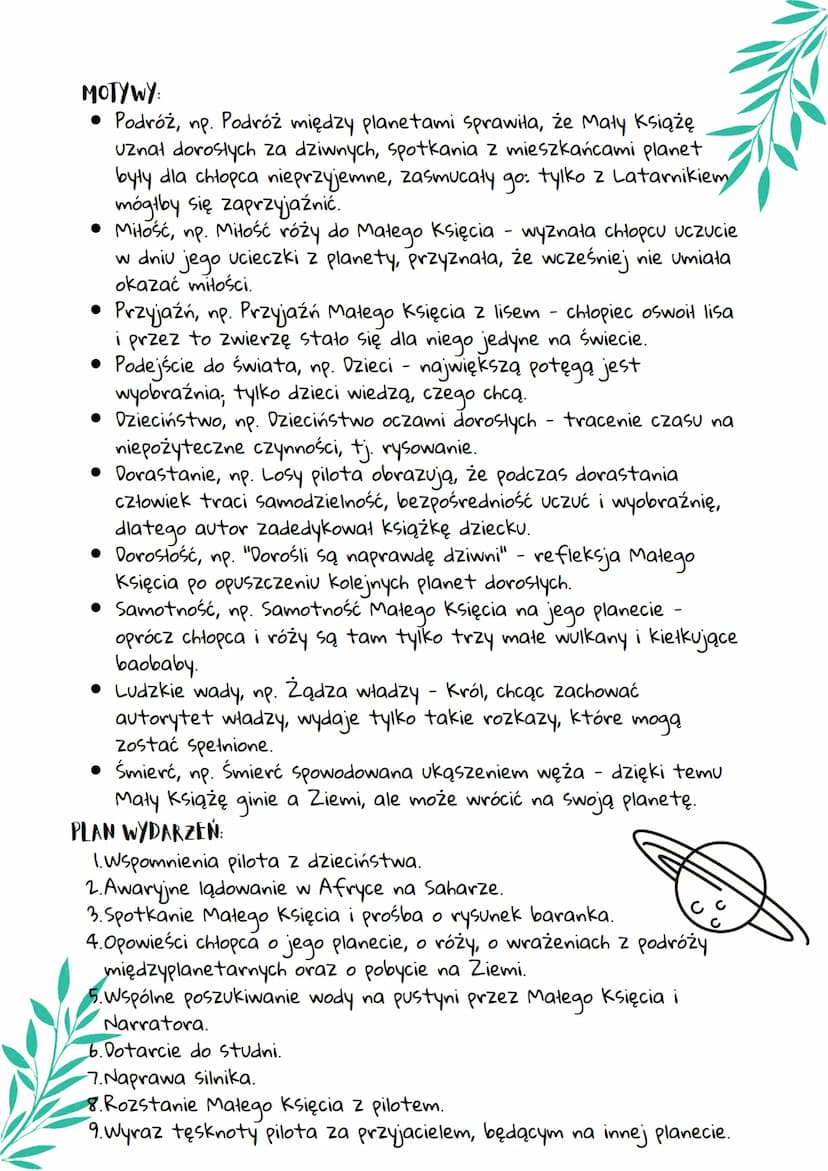 MOTYWY:
• Podróż, np. Podróż między planetami sprawiła, że Mały Książę
uznał dorosłych za dziwnych, spotkania z mieszkańcami planet
były dla chłopca nieprzyjemne, zasmucały go: tylko z Latarnikiem
mógłby się zaprzyjaźnić.
• Miłość, np. Miłość róży do Małego Księcia - wyznała chłopcu uczucie
w dniu jego ucieczki z planety, przyznała, że wcześniej nie umiała
okazać miłości.
• Przyjaźń, np. Przyjaźń Małego Księcia z lisem - chłopiec oswoił lisa
i przez to zwierzę stało się dla niego jedyne na świecie.
• Podejście do świata, np. Dzieci - największą potęgą jest
wyobraźnia; tylko dzieci wiedzą, czego chcą.
• Dzieciństwo, np. Dzieciństwo oczami dorosłych - tracenie czasu na
niepożyteczne czynności, tj. rysowanie.
• Dorastanie, np. Losy pilota obrazują, że podczas dorastania
człowiek traci samodzielność, bezpośredniość uczuć i wyobraźnię,
dlatego autor zadedykował książkę dziecku.
• Dorosłość, np. "Dorośli są naprawdę dziwni" - refleksja Małego
Księcia po opuszczeniu kolejnych planet dorosłych.
• Samotność, np. Samotność Małego Księcia na jego planecie -
oprócz chłopca i róży są tam tylko trzy małe wulkany i kiełkujące
baobaby.
• Ludzkie wady, np. Żądza władzy - Król, chcąc zachować
autorytet władzy, wydaje tylko takie rozkazy, które mogą
zostać spełnione.
• Śmierć, np. Śmierć spowodowana ukąszeniem węża - dzięki temu
Mały Książę ginie a Ziemi, ale może wrócić na swoją planetę.
PLAN WYDARZEŃ:
1.Wspomnienia pilota z dzieciństwa.
2.Awaryjne lądowanie w Afryce na Saharze.
3.Spotkanie Małego Księcia i prośba o rysunek baranka.
4.Opowieści chłopca o jego planecie, o róży, o wrażeniach z podróży
międzyplanetarnych oraz o pobycie na Ziemi.
5.Wspólne poszukiwanie wody na pustyni przez Małego Księcia i
Narratora.
6.Dotarcie do studni.
7.Naprawa silnika.
8.Rozstanie Małego Księcia z pilotem.
9.Wyraz tęsknoty pilota za przyjacielem, będącym na innej planecie.